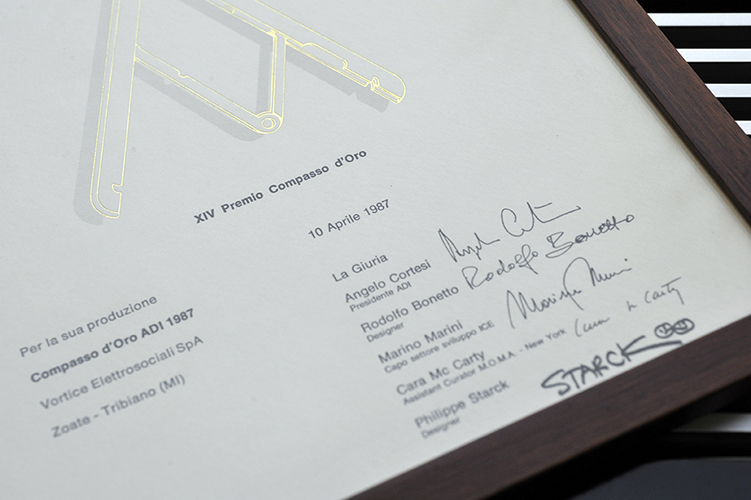 XIV Premio Compasso d'Oro
10 Aprile 1987
La Giuria
Angelo Cortesi
Presidente ADI
Rodolfo Bonetto
Rodolfo Bonetto
Designer
Marino Marini
Capo settore sviluppo ICE
Cara Mc Carty
Assistant Curator M.O.M.A. - New York
Cara Mc Carty
Philippe Starck
Designer
STARCK
Per la sua produzione
Compasso d'Oro ADI 1987
Vortice Elettrosociali SpA
Zoate - Tribiano (MI)